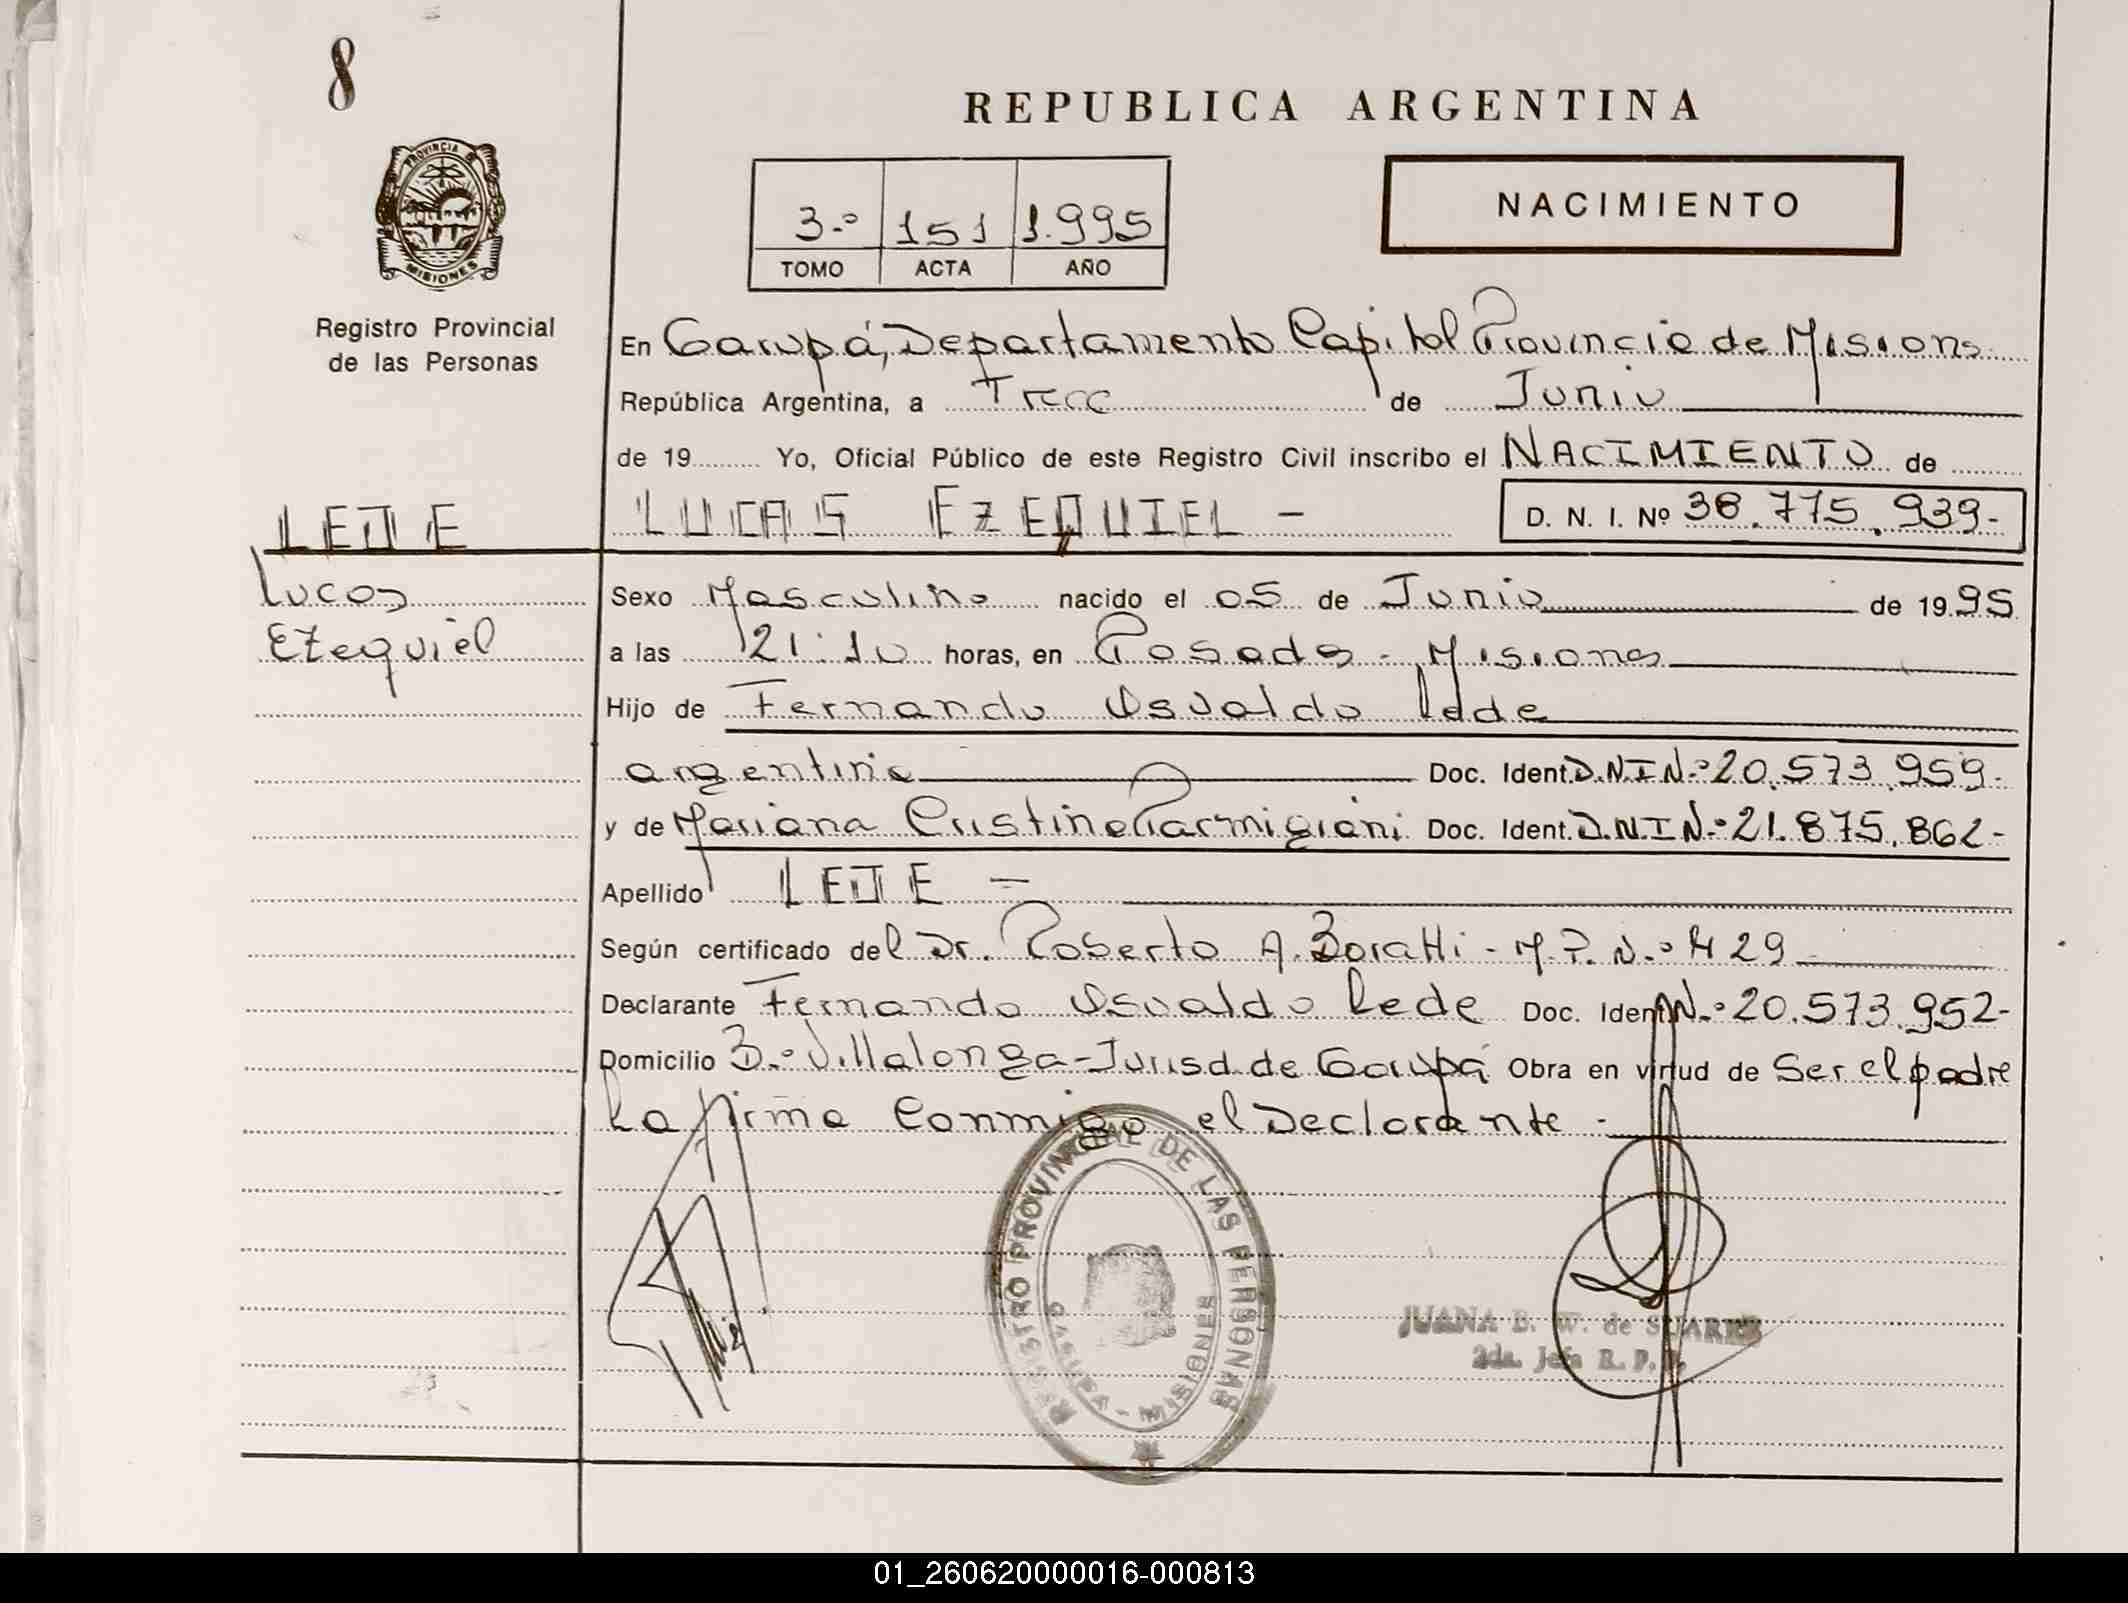 8
REPUBLICA ARGENTINA
PROVINCIA DE
MISIONES
3.º 151 1.995
TOMO ACTA AÑO
NACIMIENTO
Registro Provincial
de las Personas
En Garupá, Departamento Capital Provincia de Misiones
República Argentina, a Trece de Junio
de 19 Yo, Oficial Público de este Registro Civil inscribo el NACIMIENTO de
LUCAS EZEQUIEL - D. N. I. Nº 38.775.939-
Lucas
Ezequiel
Sexo Masculino nacido el 05 de Junio de 1995
a las 21:10 horas, en Posadas - Misiones
Hijo de Fernando Osvaldo
argentina Doc. Ident. D.N.I N.º 20.573.959-
y de Mariana Cristina Parmigiani Doc. Ident. D.N.I N.º 21.875.862-
Apellido
Según certificado del Dr. Roberto A. Boratti - M.P. N.º 429
Declarante Fernando Osvaldo Doc. Ident N.º 20.573.952-
Domicilio B.º Villalonga - Jurisd. de Garupá Obra en virtud de Ser el padre
La firma Conmigo el Declarante -
REGISTRO PROVINCIAL DE LAS PERSONAS
GARUPA - MISIONES
JUANA B. W. de SUAREZ
2da. Jefa R. P. P.
01_260620000016-000813